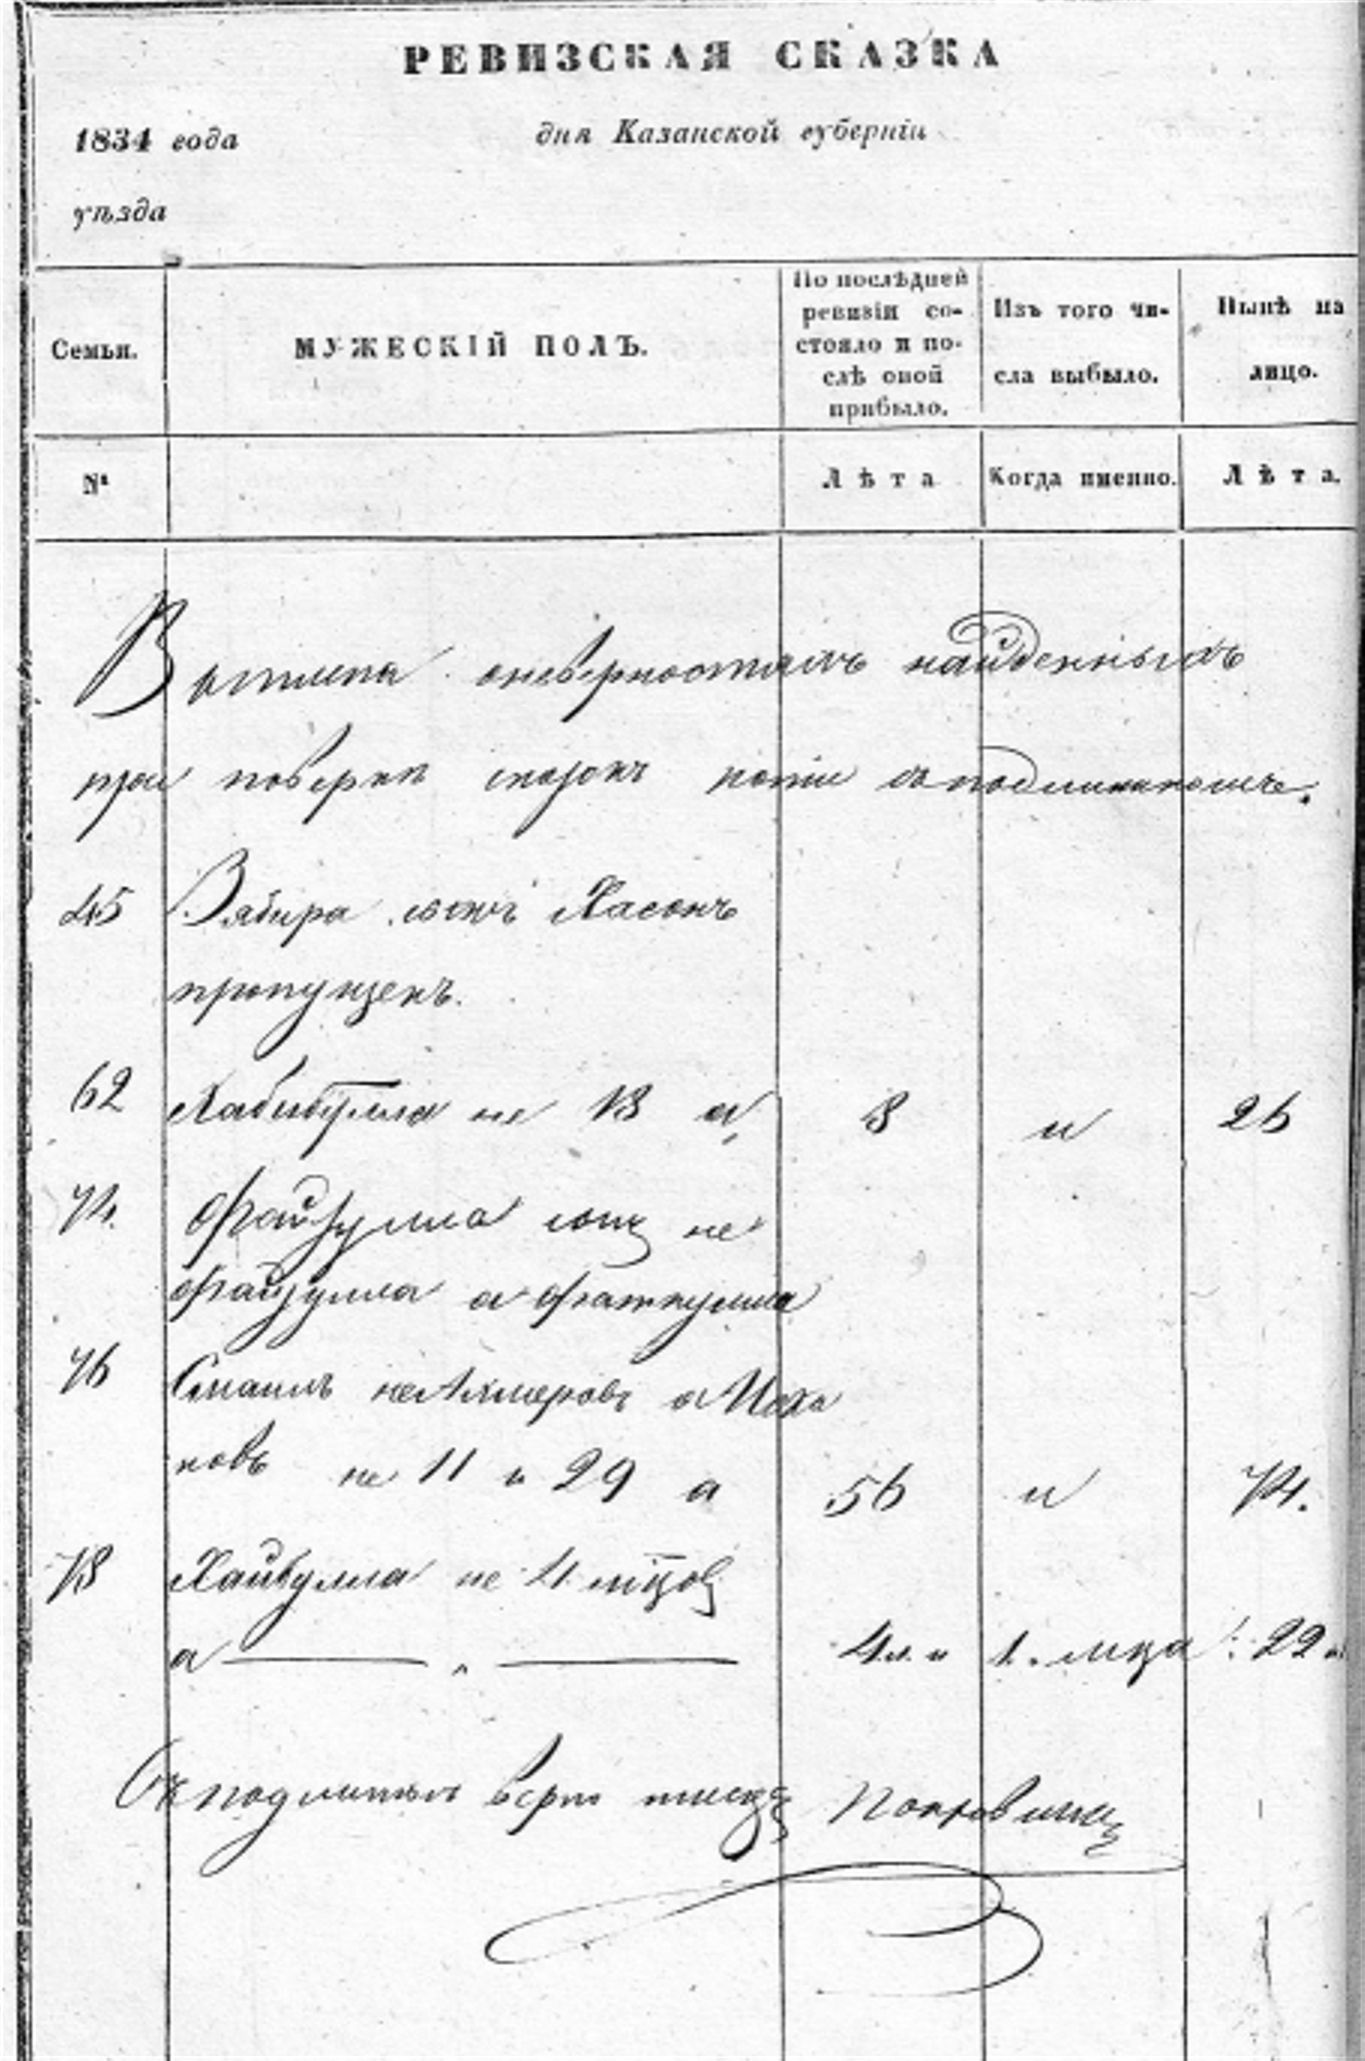 РЕВИЗСКАЯ СКАЗКА
1834 года дня Казанской губерніи
уѣзда
Семьи. МУЖЕСКІЙ ПОЛЪ. По послѣдней ревизіи состояло и послѣ оной прибыло. Изъ того числа выбыло. Нынѣ на лицо.
№ Лѣта Когда именно. Лѣта.
оневѣрностямъ найденнымъ
при повѣркѣ сказокъ копіи съ подлинникомъ.
45 Зябира сынъ Хасанъ
пропущенъ.
62 Хабибулла не 18 а 8 и 26
74. Файзулла сынъ не
Файзулла а Фаткулла
76 Смаилъ не Ахмеровъ а
новъ не 11 и 29 а 56 и 74.
78 Хайбулла не 4 мцовъ
а — " — 4 л. и 1. мца 22
Съ подлиннымъ вѣрно писецъ